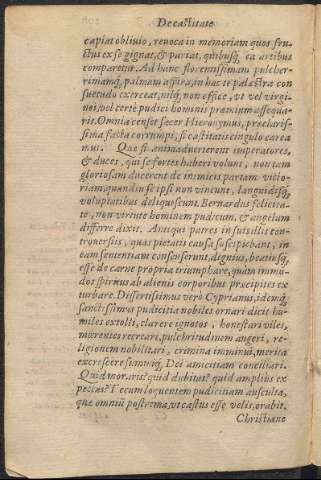 De castitate
capiat oblivio, revoca in memoriam quos fru-
ctus ex se gignat, & pariat, quibusq́; ea artibus
comparetur. Ad hanc florentissimam pulcher-
rimamq́; palmam aspira, in hac te palæstra con
suetudo exerceat, nihil non effice, ut vel virgi-
nis, vel certè pudici hominis præmium assequa-
ris. Omnia censet sacer Hieronymus, præclaris-
sima facta corrumpi, si castitatis cingulo carea
mus. Que si animadverterent imperatores,
& duces, qui se fortes haberi volunt, non tam
gloriosam ducerent de inimicis partam victo-
riam, quandiu se ipsi non vincunt, languidisq́;
voluptatibus deliquescunt. Bernardus felicita-
te, non virtute hominem pudicum, & angelum
differre dixit. Antiqui patres in suis illis con-
troversiis, quas pietatis causa suscipiebant, in
eam sententiam consenserunt, dignius, beatiusq́;
esse de carne propria triumphare, quàm immu-
dos spiritus ab alienis corporibus præcipites ex
turbare. Dissertissimus verò Cyprianus, idemq́;
sanctissimus pudicitia nobiles ornari dicit hu-
miles extolli, clarere ignotos, honestari viles,
mœrentes recreari, pulchritudinem augeri, re-
ligionem nobilitari, crimina imminui, merita
excrescere summiq́; Dei amicitiam conciliari.
Quid moraris? quid dubitas? quid amplius ex
pectas? Tecum loquentem pudicitiam ausculta,
que omniũ postrema, ut castus esse velis, orabit.
Christiane